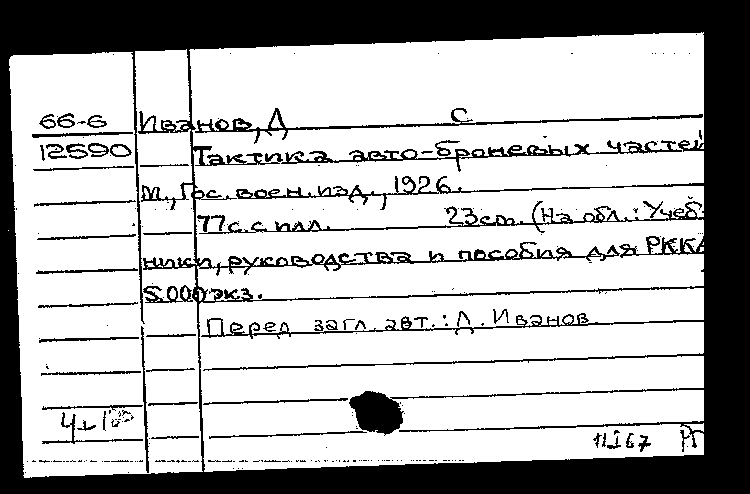 66-6 Иванов, Д С
12590 Тактика авто-броневых частей
М., Гос. воен. изд., 1926.
77 с. с илл. 23 см. (На обл.: Учеб-
ники, руководства и пособия для РККА
5.000 экз.
Перед загл. авт.: Д. Иванов
11 I 67 РГ